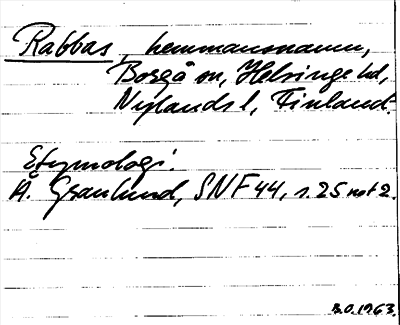 Rabbas, hemmansnamn,
Borgå sn, Helsinge hd,
Nylands l, Finland.
Etymologi.
Å. Granlund, SNF 44, s. 25 not 2.
B.O. 1963.